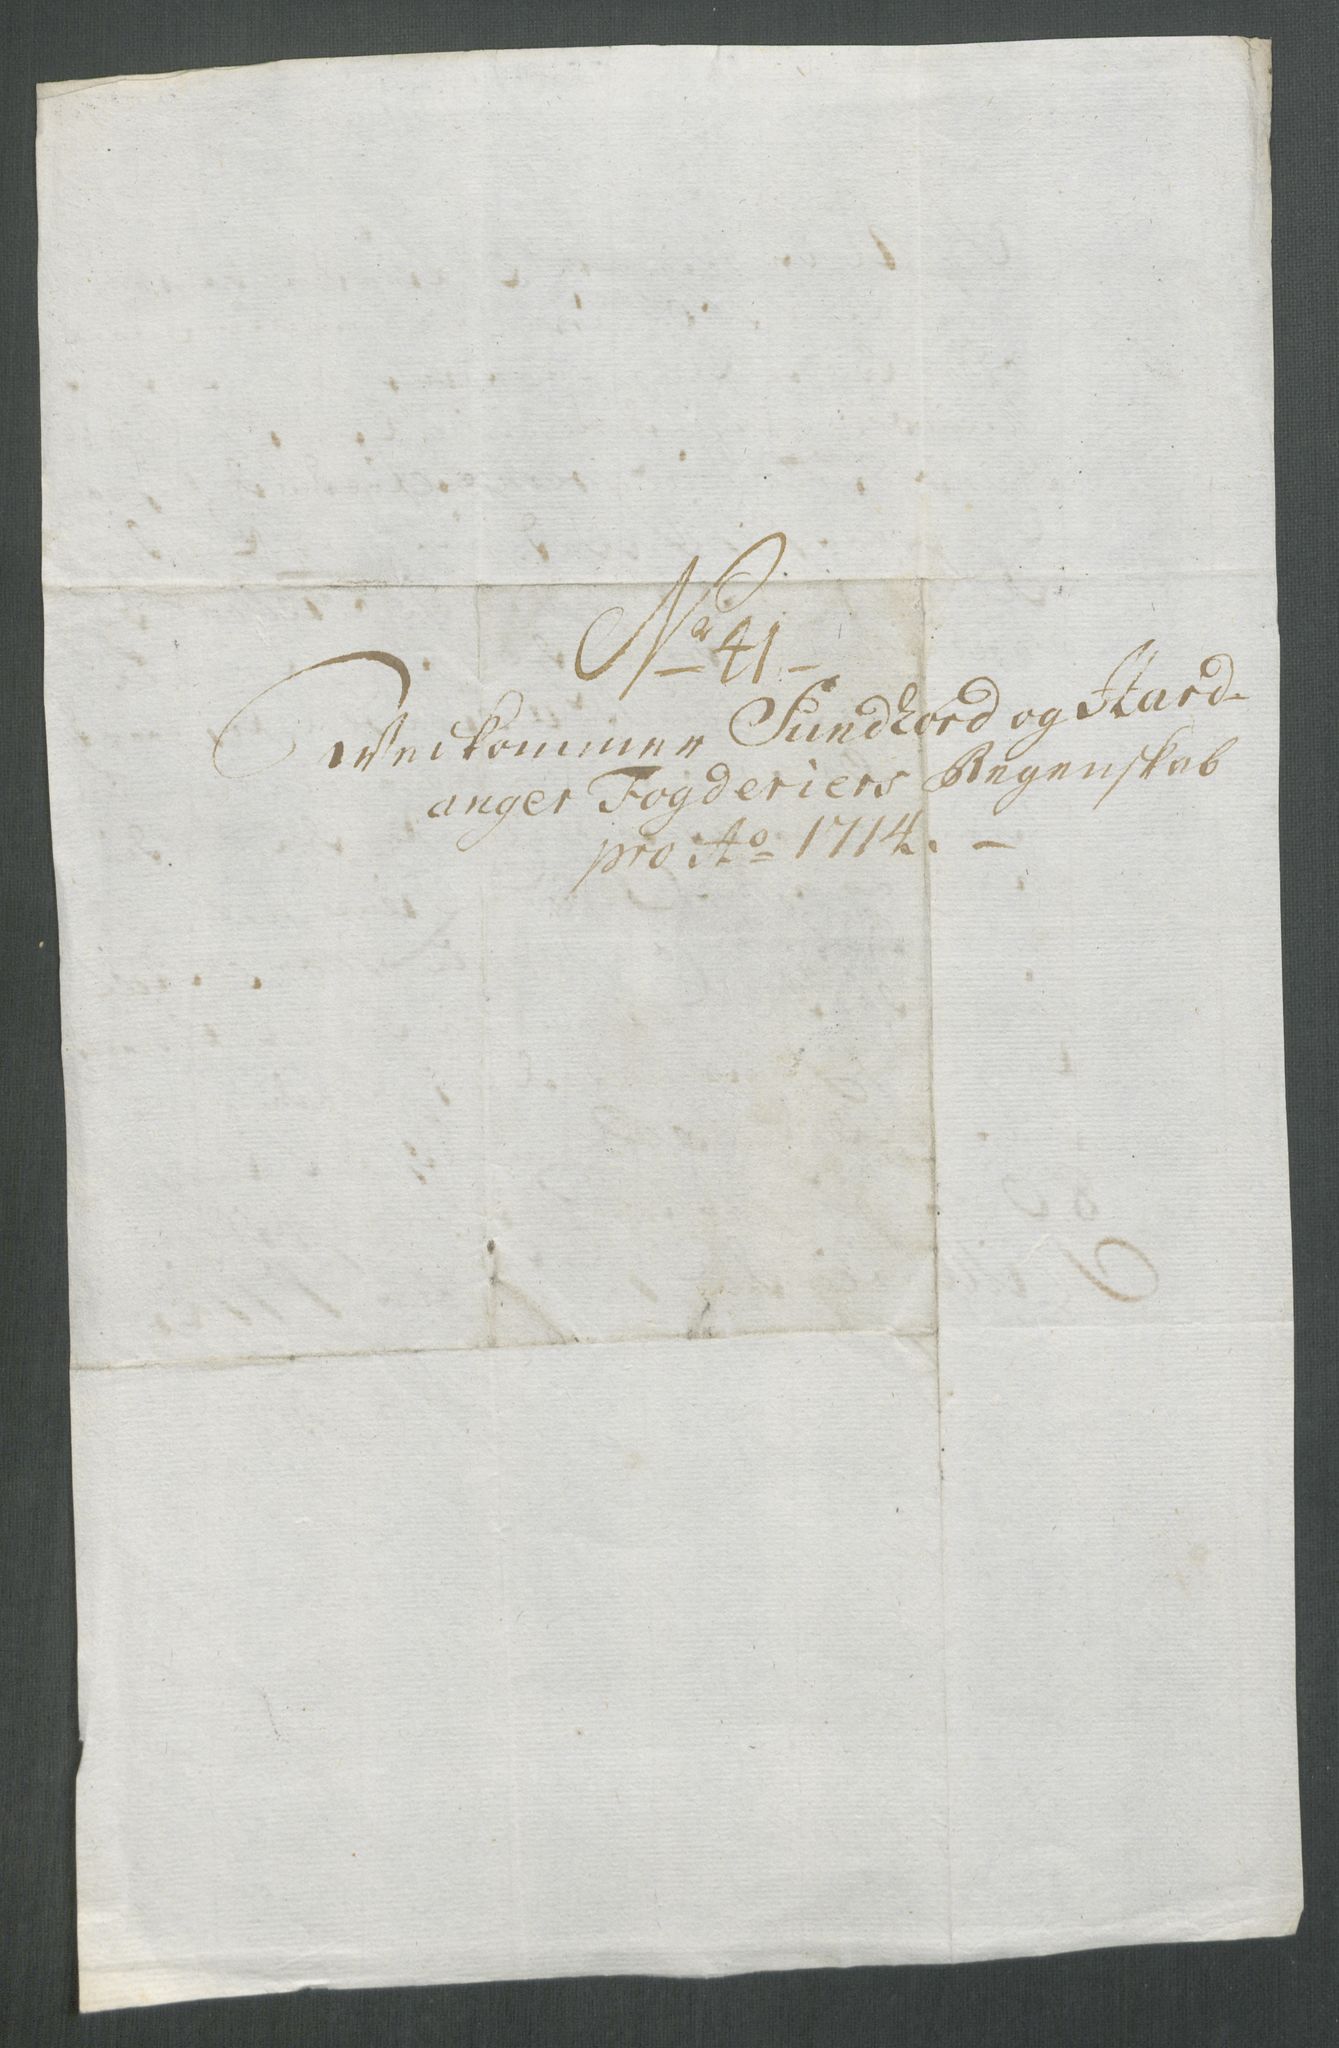 Nr 41
Vedkommer Sundhord og Hard-
anger Fogderiers Regenskab
pro Ao 1714.